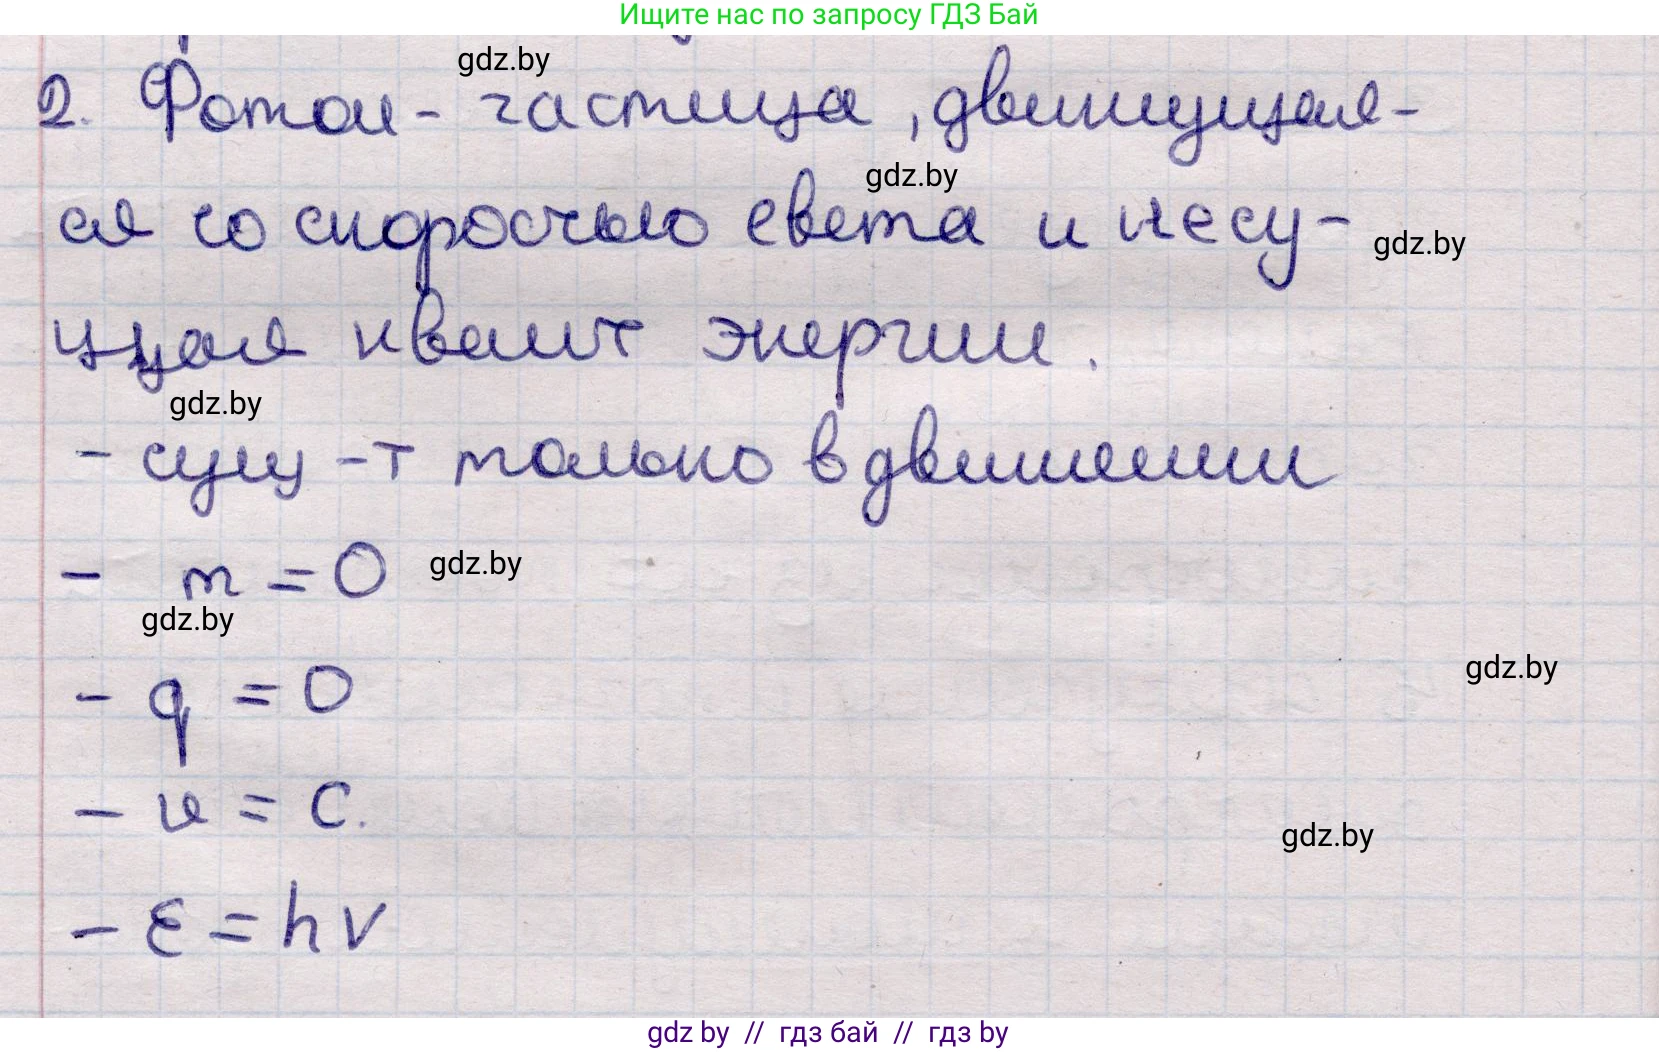 Ищите нас по запросу ГДЗ Бай
gdz.by
2. Фотон - частица, движущая-
gdz.by
ся со скоростью света и несу-
gdz.by
щая квант энергии.
gdz.by
- сущ-т только в движении
- m = 0
gdz.by
gdz.by
- q = 0
gdz.by
- v = c.
gdz.by
- ε = hν
gdz by // гдз бай // гдз by